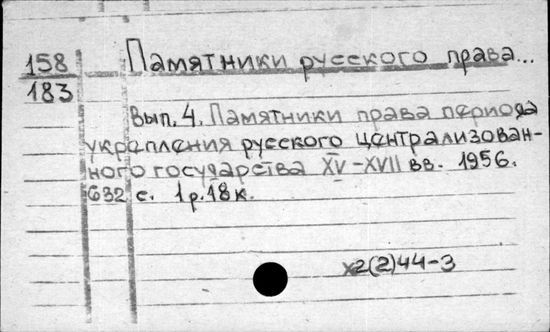 158 Памятники русского права...
183
Вып. 4. Памятники права периода
укрепления русского централизован-
ного государства XV-XVII вв. 1956.
632 с. 1 р. 18 к.
х2(2)44-3